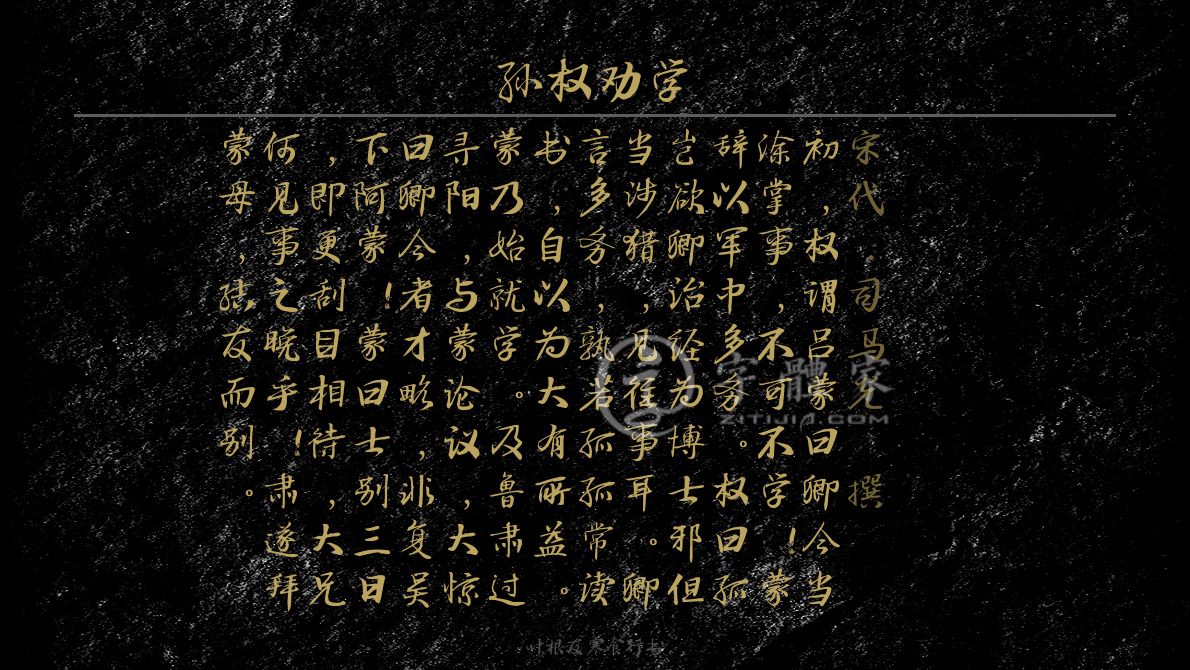 孙权劝学
宋代.司马光 撰
初，权谓吕蒙曰卿今当
涂掌事，不可不学！蒙
辞以军中多务。权曰孤
岂欲卿治经为博士邪但
当涉猎，见往事耳。卿
言多务，孰若孤孤常读
书，自以为大有所益。
蒙乃始就学。及鲁肃过
寻阳，与蒙论议，大惊
曰卿今者才略，非复吴
下阿蒙！蒙曰士别三日
，即更刮目相待，大兄
何见事之晚乎！肃遂拜
蒙母，结友而别。
字體家
ZITIJIA.COM
叶根友寒食行书